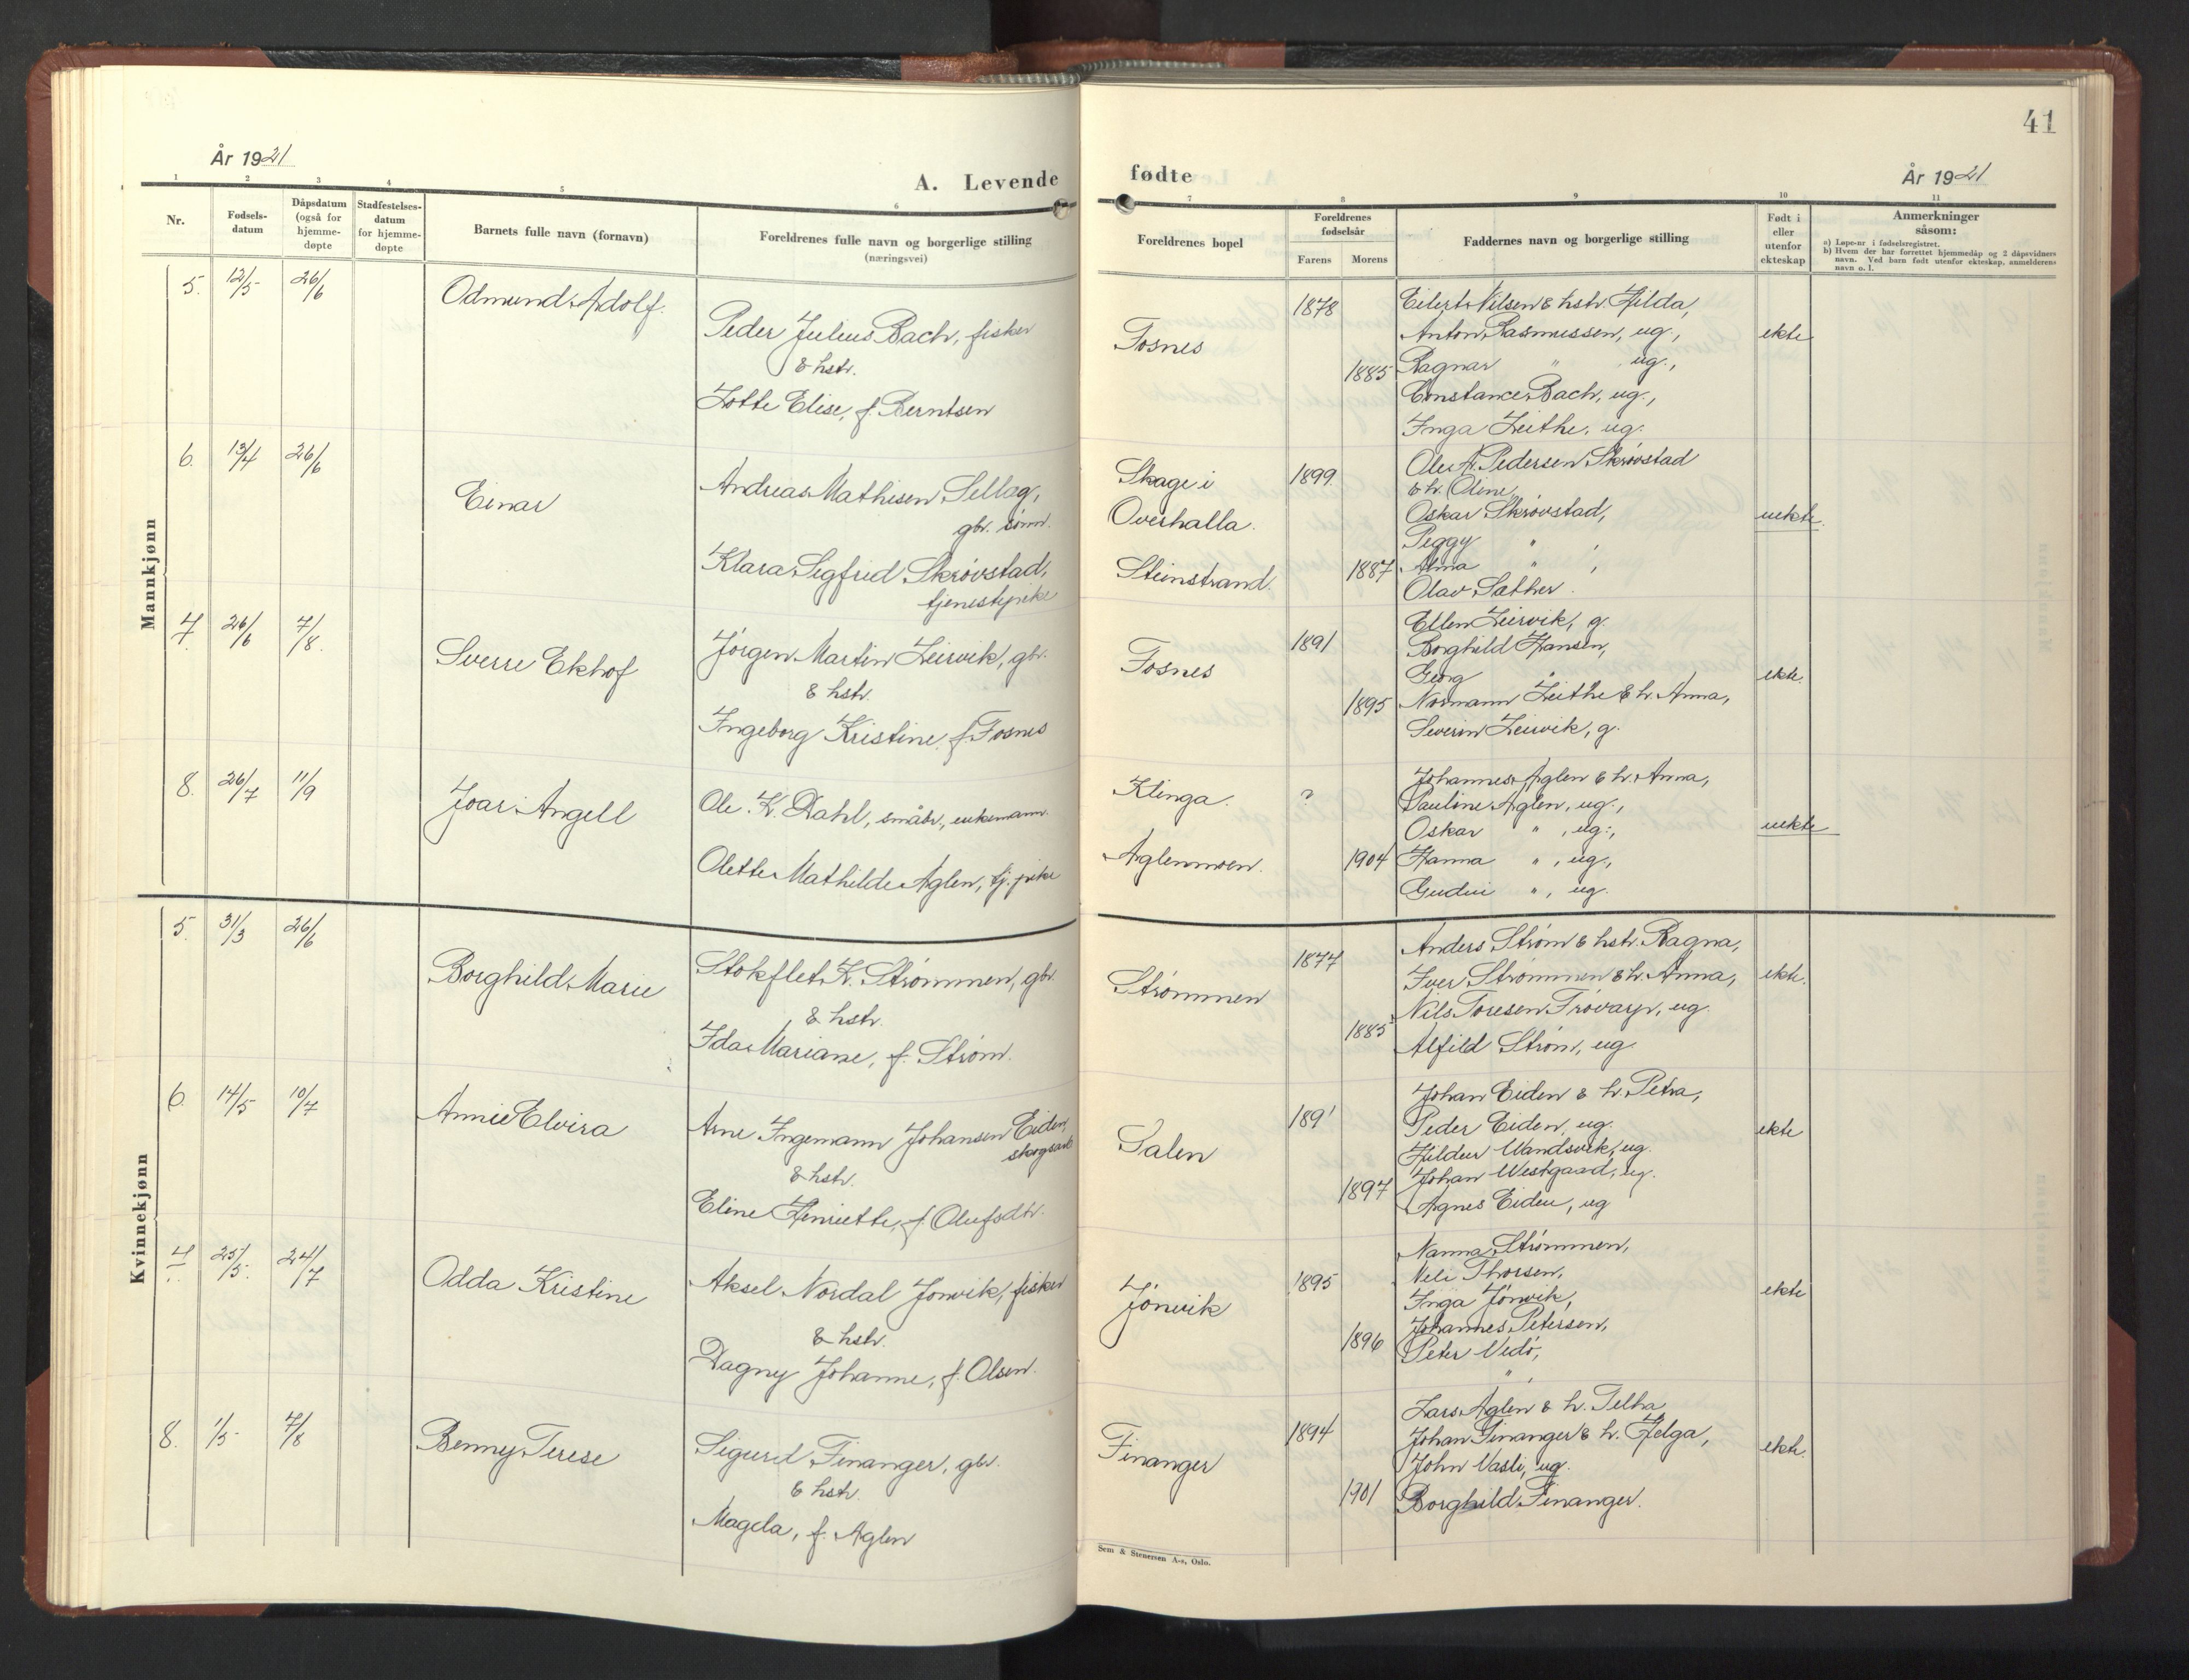 41
År 1921
A. Levende
fødte
År 1921
1 2 3 4 5 6
7 8 9 10 11
Nr.
Fødsels-
datum
Dåpsdatum
(også for
hjemme-
døpte
Stadfestelses-
datum
for hjemme-
døpte
Barnets fulle navn (fornavn)
Foreldrenes fulle navn og borgerlige stilling
(næringsvei)
Foreldrenes bopel
Foreldrenes
fødselsår
Farens Morens
Faddernes navn og borgerlige stilling
Født i
eller
utenfor
ekteskap
Anmerkninger
såsom:
a) Løpe-nr i fødselsregistret.
b) Hvem der har forrettet hjemmedåp og 2 dåpsvidners
navn. Ved barn født utenfor ekteskap, anmelderens
navn o. l.
Mannkjønn
5. 12/5 26/6 Odmund Adolf.
Peder Julius Bach, fisker
& hstr.
Lotte Elise, f. Berntsen
Fosnes
1878
1885
Eilert Nilsen & hstr. Hilda,
Anton Rasmussen, ug.,
Ragnar " ug.,
Constance Bach, ug.,
Inga Leithe, ug.
ekte
6. 13/4 26/6 Einar
Andreas Mathisen Sellæg,
gbr. sønn.
Klara Sigfrid Skrøvstad,
tjenestepike
Skage i
Overhalla.
Steinstrand.
1899.
1887
Ole A. Pedersen Skrøvstad
& h. Oline,
Oskar Skrøvstad,
Peggy " ,
Alma " ,
Olav Sæther.
uekte.
7. 26/6 7/8. Sverre Ekhof
Jørgen Martin Leirvik, gbr.
& hstr.
Ingeborg Kristine, f. Fosnes
Fosnes
1891
1895
Ellen Leirvik, g.
Borghild Hansen,
Georg "
Normann Leithe & h. Anna,
Severin Leirvik, g.
ekte.
8. 26/7 11/9 Joar Angell
Ole K. Dahl, småbr., enkemann.
Olette Mathilde Aglen, tj. pike
Klinga.
Aglenmoen.
?
1904
Johannes Aglen & h. Anna,
Pauline Aglen, ug.,
Oskar " , ug.,
Hanna " , ug.,
" , ug.
uekte
Kvinnekjønn
5. 31/3 26/6 Borghild Marie
Stokflet K. Strømmen, gbr.
& hstr.
Ida Mariane, f. Strøm.
Strømmen
1874
1885
Anders Strøm & hstr. Ragna,
Iver Strømmen & h. Anna,
Nils Toresen ug.
Alfild Strøm, ug.
ekte.
6. 14/5 10/7 Annie Elvira
Arne Ingemann Johansen Eiden,
skogsarb
& hstr.
Eline Henriette, f. Olufsdtr.
Salen
1891
1897
Johan Eiden & h. Petra,
Peder Eiden, ug.
Hildur Wandsvik, ug.
Johan Westgaard, ug.
Agnes Eiden, ug
ekte
7. 25/5. 24/7 Odda Kristine
Aksel Nordal Jønvik, fisker
& hstr.
Dagny Johanne, f. Olsen.
Jønvik
1895
1896
Nanna Strømmen,
Thorsen,
Inga Jønvik,
Johannes Petersen,
Peter Vedø,
" ,
ekte
8. 1/5 7/8 Benny Terese
Sigurd Finanger, gbr.
& hstr.
Magda, f. Aglen
Finanger
1894
1901
Lars Aglen & h.
Johan Finanger & h. Helga,
John Vasli, ug.
Borghild Finanger.
ekte.
Sem & Stenersen A-s, Oslo.